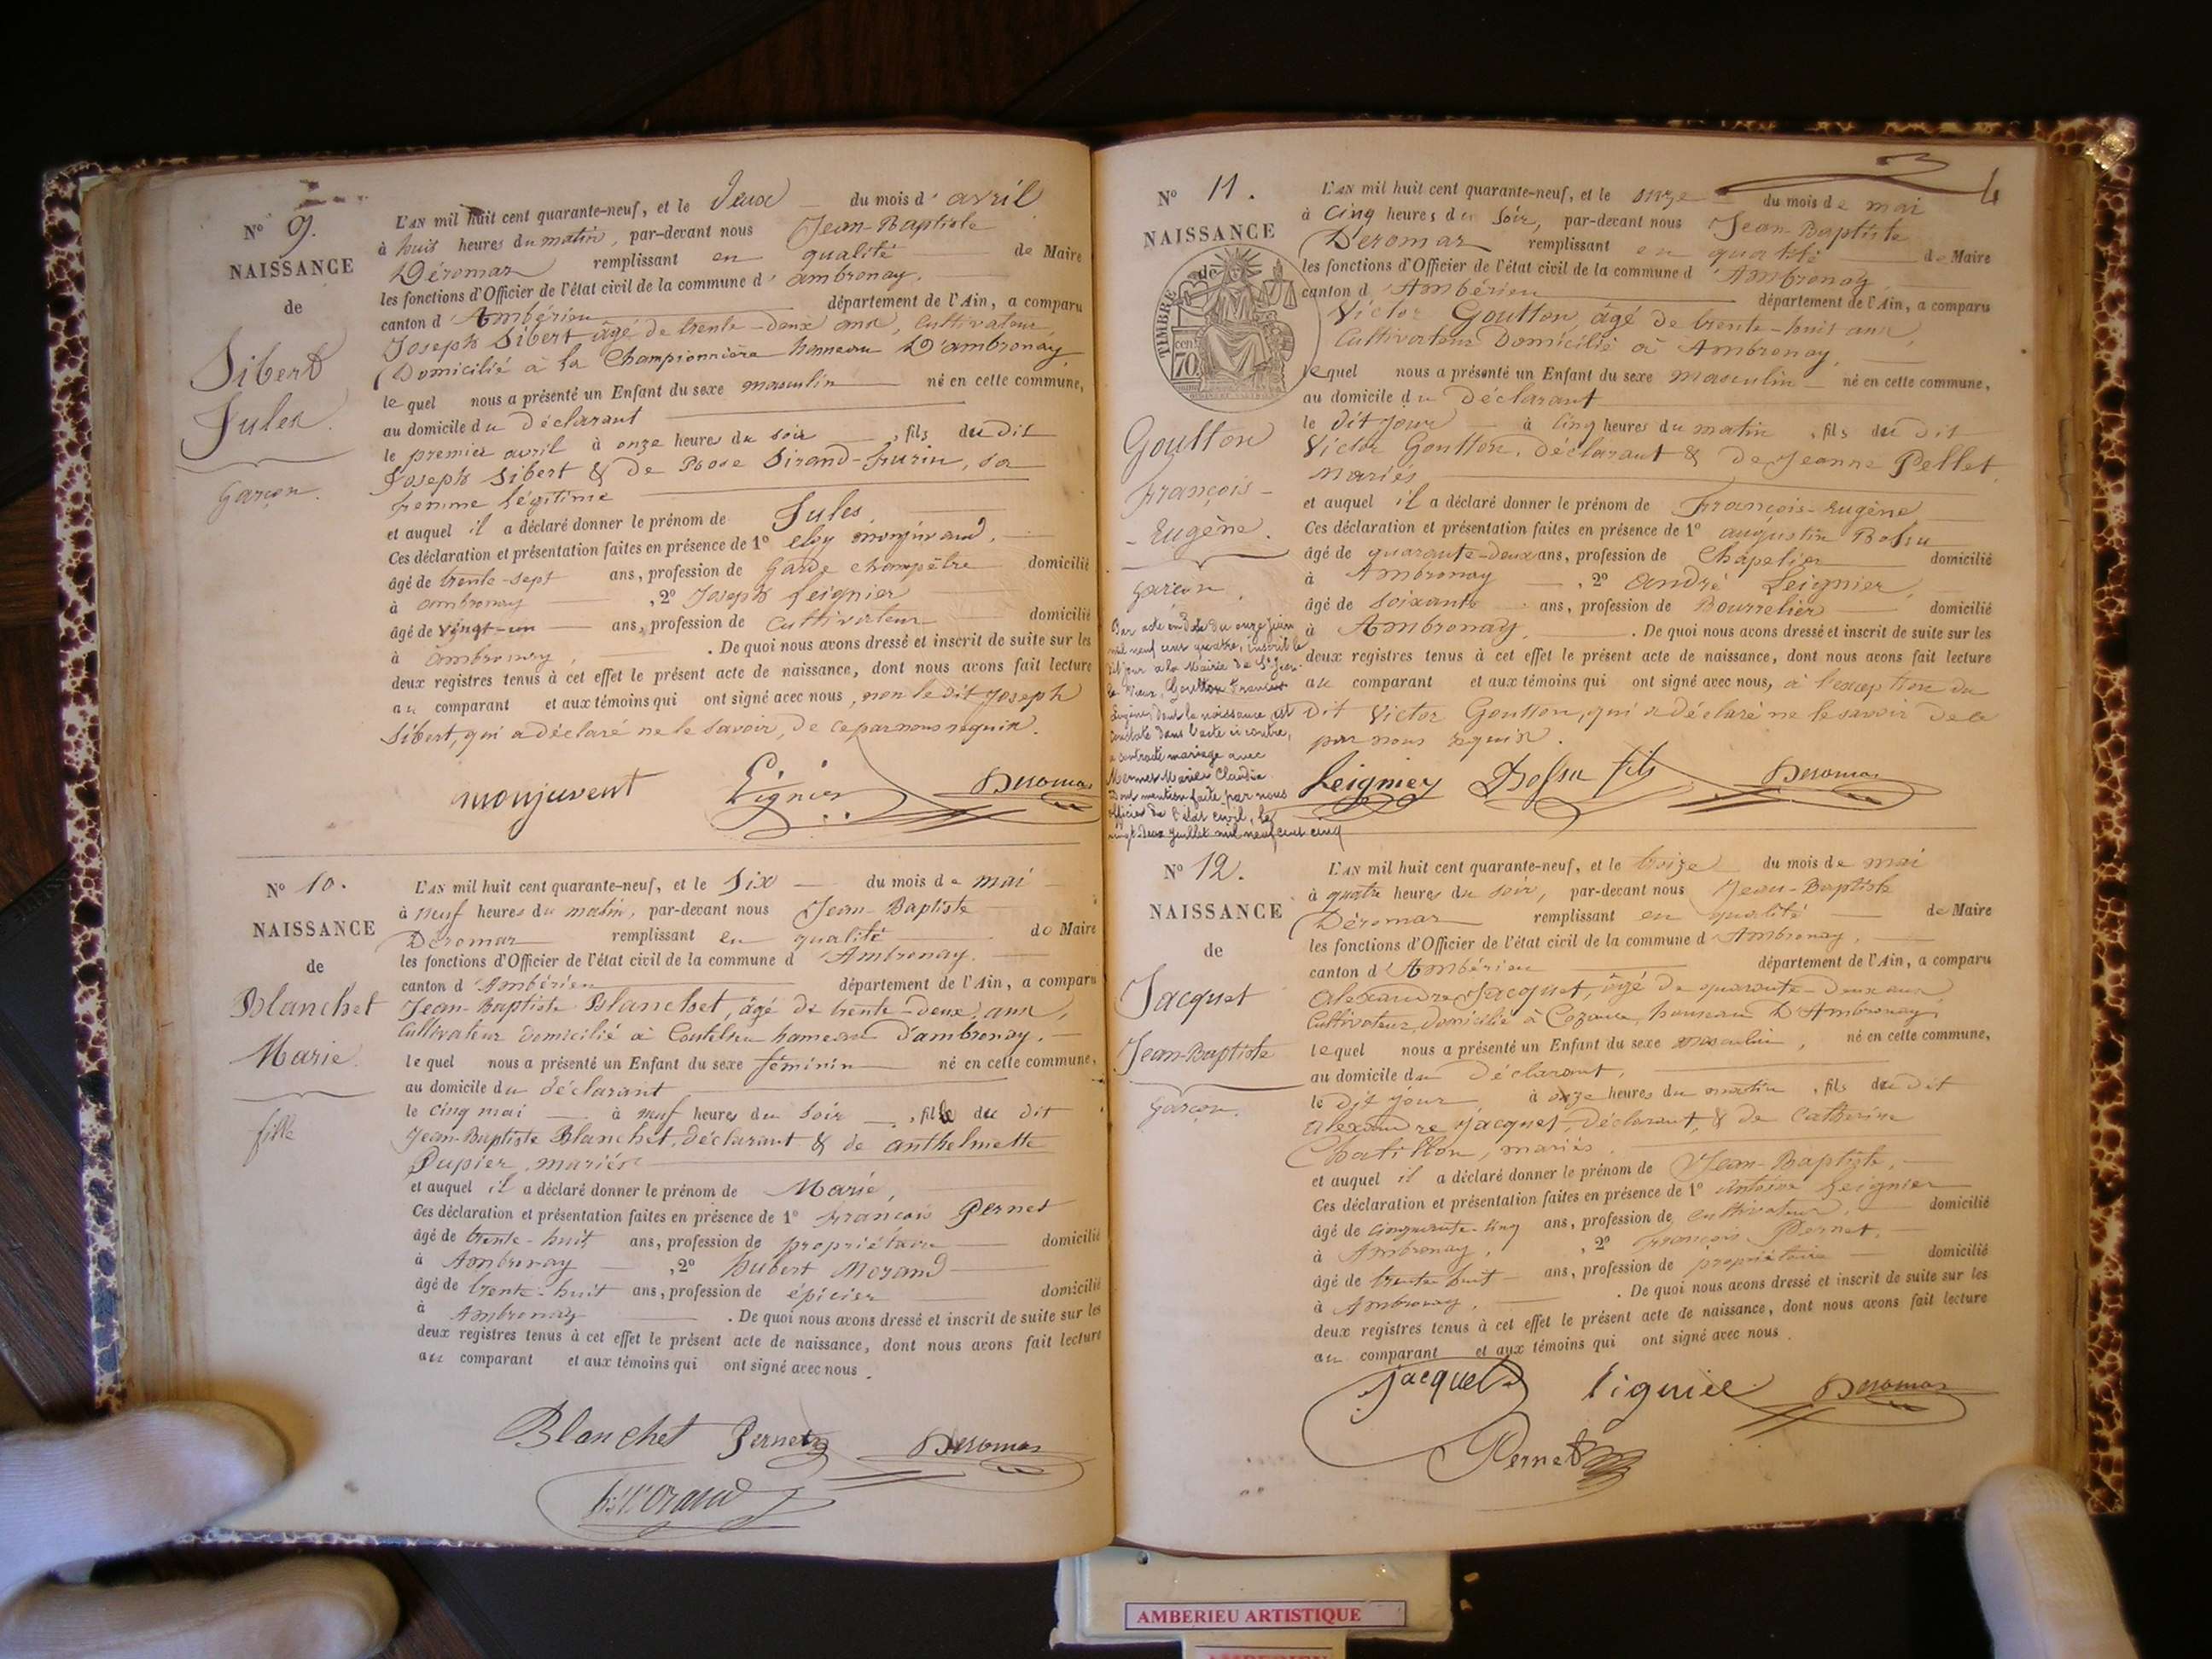 N° 9.
NAISSANCE
de
Sibert
Jules.
Garçon.
L'AN mil huit cent quarante-neuf, et le deux du mois d'avril
à huit heures du matin, par-devant nous Jean-Baptiste
Déromas remplissant en qualité de Maire
les fonctions d'Officier de l'état civil de la commune d'ambronay,
canton d'Ambérieu département de l'Ain, a comparu
Joseph Sibert âgé de trente-deux ans, Cultivateur,
Domicilié à la Championnière hameau D'ambronay
lequel nous a présenté un Enfant du sexe masculin né en cette commune,
au domicile du déclarant
le premier avril à onze heures du soir, fils du dit
Joseph Sibert & de Rose Sirand-, sa
femme légitime
et auquel il a déclaré donner le prénom de Jules.
Ces déclaration et présentation faites en présence de 1°
âgé de trente-sept ans, profession de Garde champêtre domicilié
à ambronay, 2° Joseph Leignier
âgé de vingt-un ans, profession de Cultivateur domicilié
à ambronay, . De quoi nous avons dressé et inscrit de suite sur les
deux registres tenus à cet effet le présent acte de naissance, dont nous avons fait lecture
au comparant et aux témoins qui ont signé avec nous, non le dit Joseph
Sibert, qui a déclaré ne le savoir, de ce par nous requis.
monjuvent Lignier Deromas
N° 10.
NAISSANCE
de
Blanchet
Marie.
fille
L'AN mil huit cent quarante-neuf, et le Six du mois de mai
à neuf heures du matin, par-devant nous Jean-Baptiste
Déromas remplissant en qualité de Maire
les fonctions d'Officier de l'état civil de la commune d'Ambronay.
canton d'Ambérieu département de l'Ain, a comparu
Jean-Baptiste Blanchet, âgé de trente-deux ans,
Cultivateur domicilié à Coutelieu hameau d'ambronay.
lequel nous a présenté un Enfant du sexe féminin né en cette commune,
au domicile du déclarant
le cinq mai à neuf heures du soir, fille du dit
Jean-Baptiste Blanchet, déclarant & de anthelmette
Dupier, mariés
et auquel il a déclaré donner le prénom de Marie,
Ces déclaration et présentation faites en présence de 1° françois Pernet
âgé de trente-huit ans, profession de propriétaire domicilié
à Ambronay, 2° hubert Morand
âgé de trente-huit ans, profession de épicier domicilié
à Ambronay . De quoi nous avons dressé et inscrit de suite sur les
deux registres tenus à cet effet le présent acte de naissance, dont nous avons fait lecture
au comparant et aux témoins qui ont signé avec nous.
Blanchet Pernet Deromas
h. Morand
4
N° 11.
NAISSANCE
de
TIMBRE
cent 70
Goutton
François-
-Eugène.
garçon.
Par acte en date du onze juin
mil neuf cent quatre, inscrit le
dit jour à la Mairie de St Jean
le Vieux, Goutton François
Eugène, dont la naissance est
constatée dans l'acte ci contre,
a contracté mariage avec
Mermet Marie Claudia
Dont mention faite par nous
officier de l'état civil, le
vingt deux juillet mil neuf cent cinq
L'AN mil huit cent quarante-neuf, et le onze du mois de mai
à cinq heures du soir, par-devant nous Jean-Baptiste
Déromas remplissant en qualité de Maire
les fonctions d'Officier de l'état civil de la commune d'Ambronay
canton d'Ambérieu département de l'Ain, a comparu
Victor Goutton, âgé de trente-huit ans,
Cultivateur Domicilié à Ambronay,
lequel nous a présenté un Enfant du sexe masculin né en cette commune,
au domicile du Déclarant
le dit jour à cinq heures du matin, fils du dit
Victor Goutton, déclarant & de Jeanne Pellet,
mariés
et auquel il a déclaré donner le prénom de François-Eugène
Ces déclaration et présentation faites en présence de 1° augustin Bossu
âgé de quarante-deux ans, profession de Chapelier domicilié
à Ambronay, 2° andré Leignier,
âgé de soixante ans, profession de Bourrelier domicilié
à Ambronay. . De quoi nous avons dressé et inscrit de suite sur les
deux registres tenus à cet effet le présent acte de naissance, dont nous avons fait lecture
au comparant et aux témoins qui ont signé avec nous, à l'exception du
dit Victor Goutton, qui a déclaré ne le savoir de ce
par nous requis.
Leignier Bossu fils Deromas
N° 12.
NAISSANCE
de
Jacquet
Jean-Baptiste
garçon.
L'AN mil huit cent quarante-neuf, et le treize du mois de mai
à quatre heures du soir, par-devant nous Jean-Baptiste
Déromas remplissant en qualité de Maire
les fonctions d'Officier de l'état civil de la commune d'Ambronay,
canton d'Ambérieu département de l'Ain, a comparu
Alexandre Jacquet, âgé de quarante-deux ans,
Cultivateur, domicilié à hameau D'Ambronay,
lequel nous a présenté un Enfant du sexe masculin, né en cette commune,
au domicile du Déclarant,
le dit jour à onze heures du matin, fils du dit
alexandre Jacquet, déclarant, & de Catherine
Chatillon, mariés.
et auquel il a déclaré donner le prénom de Jean-Baptiste,
Ces déclaration et présentation faites en présence de 1° antoine Leignier
âgé de cinquante-cinq ans, profession de cultivateur, domicilié
à Ambronay, 2° François Pernet,
âgé de trente huit ans, profession de propriétaire domicilié
à Ambronay, . De quoi nous avons dressé et inscrit de suite sur les
deux registres tenus à cet effet le présent acte de naissance, dont nous avons fait lecture
au comparant et aux témoins qui ont signé avec nous.
Jacquet Deromas
Pernet
AMBERIEU ARTISTIQUE
AMBERIEU